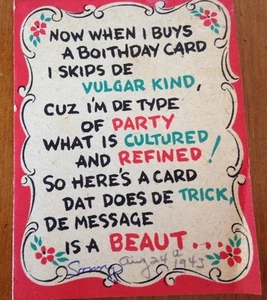 NOW WHEN I BUYS
A BOITHDAY CARD
I SKIPS DE
VULGAR KIND,
CUZ I'M DE TYPE
OF PARTY
WHAT IS CULTURED
AND REFINED!
SO HERE'S A CARD
DAT DOES DE TRICK,
DE MESSAGE
IS A BEAUT...
Aug 24th
1943